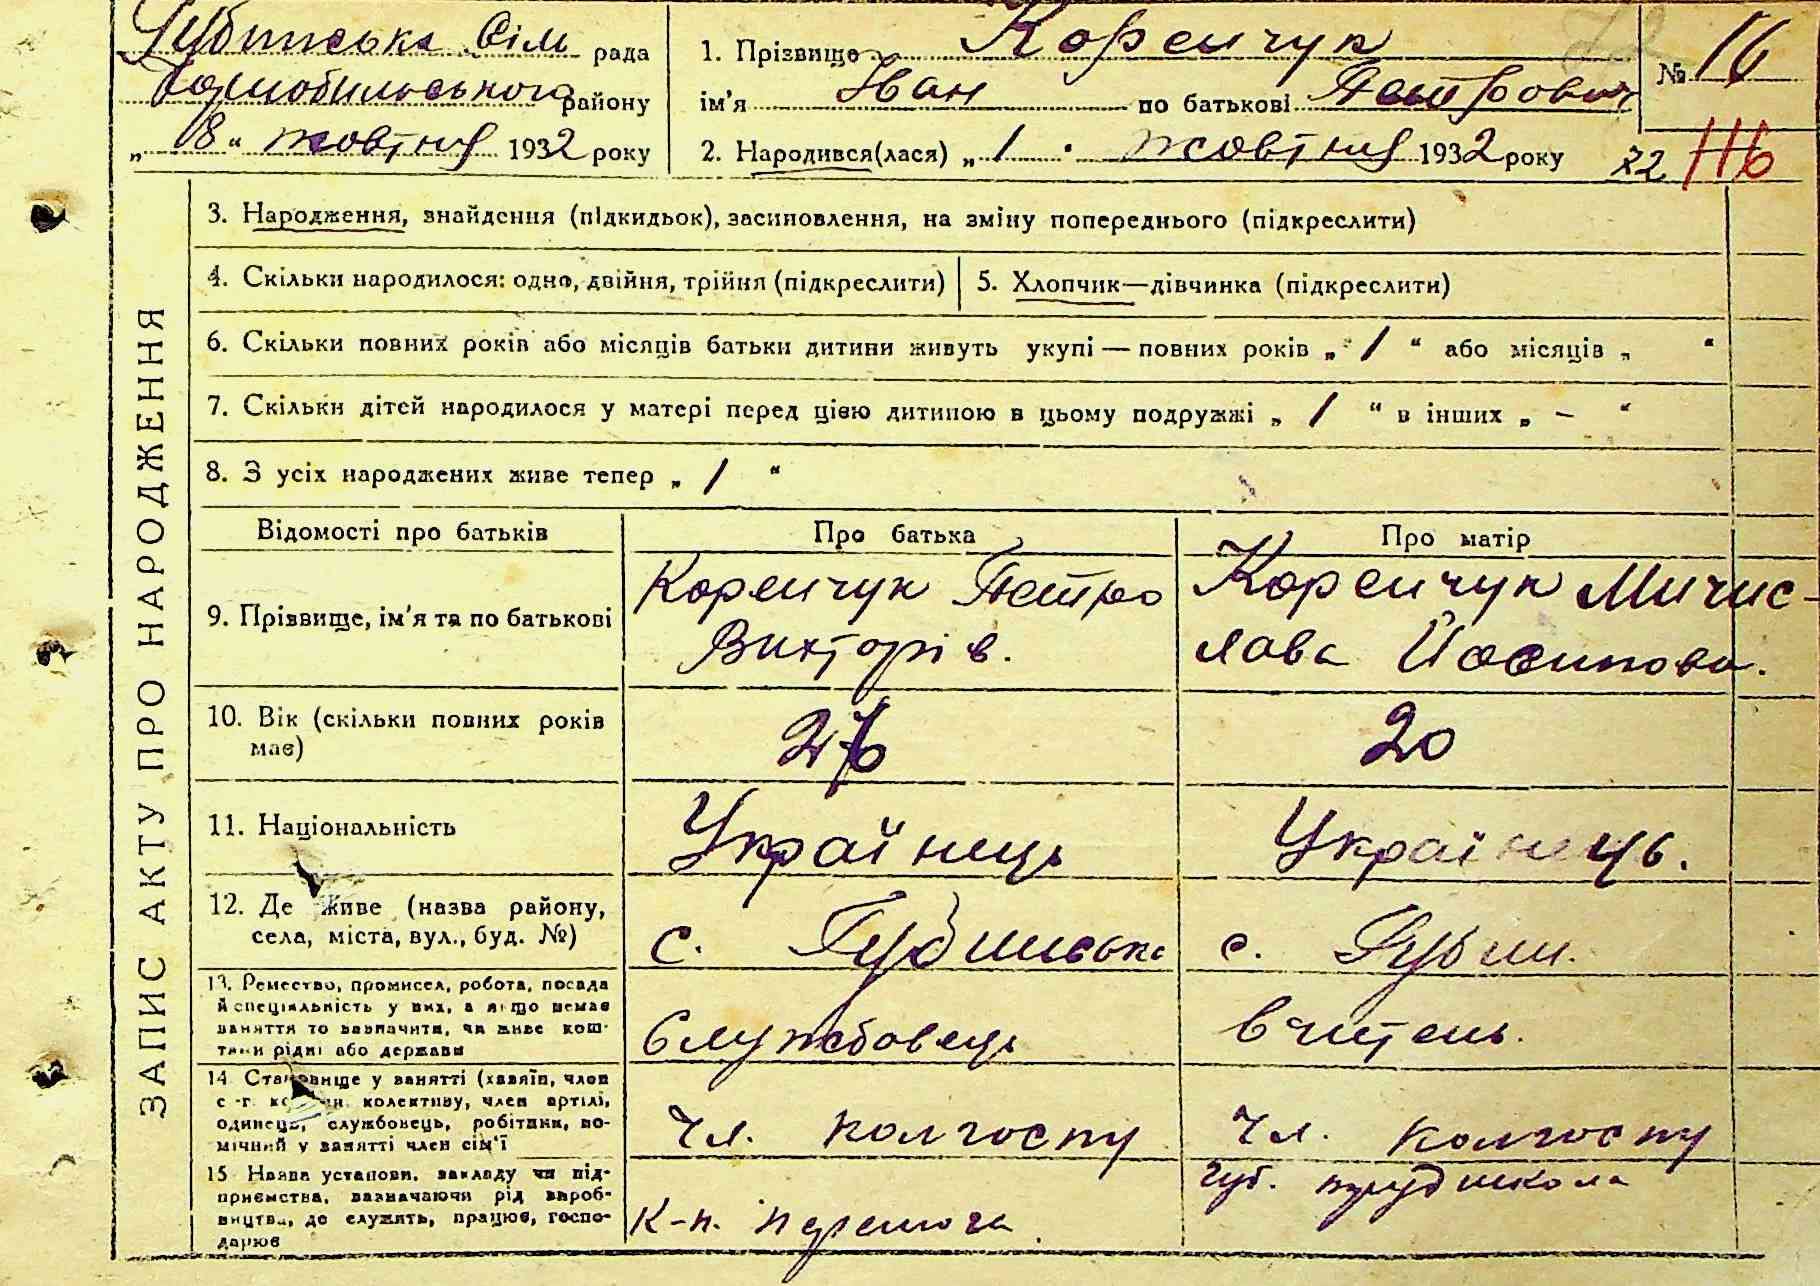 Губинська Сіль рада
району
„18“ жовтня 1932 року
1. Прізвище Коренчук
ім'я Іван по батькові Петрович
2. Народився(лася) „1 . жовтня 1932 року
№ 16
22 116
ЗАПИС АКТУ ПРО НАРОДЖЕННЯ
3. Народження, знайдення (підкидьок), засиновлення, на зміну попереднього (підкреслити)
4. Скільки народилося: одно, двійня, трійня (підкреслити)
5. Хлопчик—дівчинка (підкреслити)
6. Скільки повних років або місяців батьки дитини живуть укупі — повних років „ 1 “ або місяців „ “
7. Скільки дітей народилося у матері перед цією дитиною в цьому подружжі „ 1 “ в інших „ – “
8. З усіх народжених живе тепер „ 1 “
Відомості про батьків
Про батька
Про матір
9. Прізвище, ім'я та по батькові
Коренчук Петро
Вікторів.
Коренчук Мичис-
лава Йосипова.
10. Вік (скільки повних років
має)
20
11. Національність
Українець
Українець.
12. Де живе (назва району,
села, міста, вул., буд. №)
с. Губинська
с. Губин.
13. Ремество, промисел, робота, посада
й спеціяльність у них, а якщо немає
заняття то зазначити, чи живе кош-
тами рідні або держави
Службовець
вчитель.
14. Становище у занятті (хазяїн, член
колективу, член артілі,
одинець, службовець, робітник, по-
мічний у занятті член сім'ї
чл. колгоспу
чл. колгоспу
15 Назва установи, закладу чи під-
приємства, зазначаючи рід вироб-
ництва, де служить, працює, госпо-
дарює
К-п. Перемога.
Губ. трудшкола